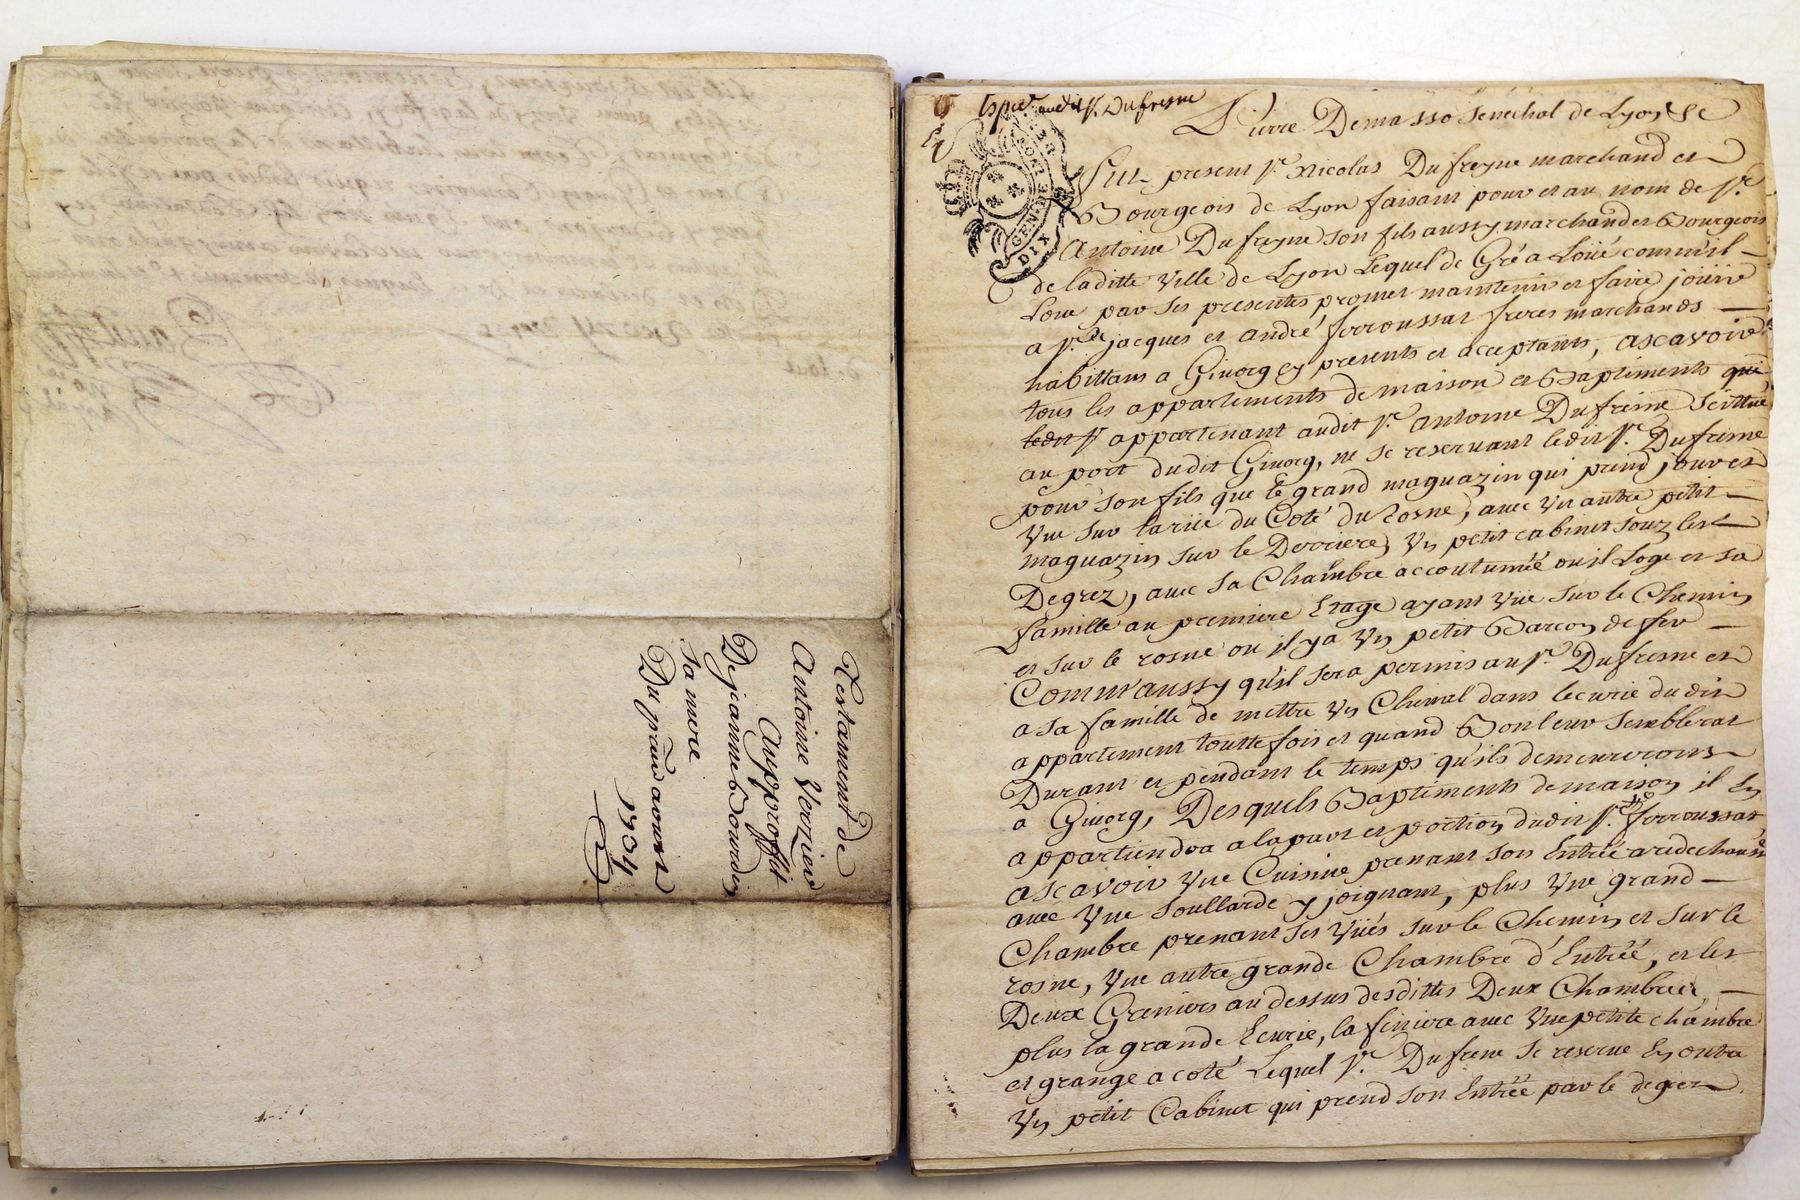 Testament de
Antoine Verzieu
Aupproffit
De jeanne Bourdin
sa mere
Du prāu aoust
1734
Expié audit sr. Dufresne
GEN. DE
DIX
Pierre Demasso Senechal de Lyon &c
Fut present sr. Nicolas Dufreyne marchand et
Bourgeois de Lyon faisant pour et au nom de sr.
Antoine Dufreyne son fils aussy marchand et Bourgeois
de laditte Ville de Lyon Lequel de Gré a Loüé comm'il
Loue par ses presentes promet maintenir et faire joüir
a srs. jacques et andré ferroussat freres marchands
habittans a Givorg ey presents et acceptants, ascavoir
tous les appartements de maison et Baptiments qui
ledit sr appartenant audit sr. antoine Dufresne scittué
au port dudit Givorg, ne se reservant ledit sr. Dufresne
pour son fils que le grand maguazin qui prend jour et
Vue sur la rüe du Coté du Rosne, avec Un autre petit
maguazin sur le Derriere, Un petit cabinet souz les
Degrez, avec sa Chambre accoutumée ou il Loge et sa
famille au premiere Etage ayant Vüe sur le Chemin
et sur le rosne ou il y a Un petit Barcon de fer
Comm'aussy qu'il sera permis au sr. Dufresne et
a sa famille de mettre Un Cheval dans lecurie dudit
appartement touttefois et quand Bon leur semblerat
Durant et pendant le temps qu'ils demeureront
a Givorg, Desquels Baptiments de maison il En
appartiendra a la part et portion dudit sr. ferroussat
ascavoir Une Cuisine prenant son Entrée a redechaussée
avec Une soullarde y joignant, plus Une grand
Chambre prenant ses Vüés sur le Chemin et sur le
rosne, Une autre grande Chambre d'Entréé, et les
Deux Greniers au dessus desdittes Deux Chambres,
plus la grande Ecurie, la finiere avec Une petite chambre
et grange a coté Lequel sr. Dufrene se reserve En outre
Un petit Cabinet qui prend son Entréé par le degrez